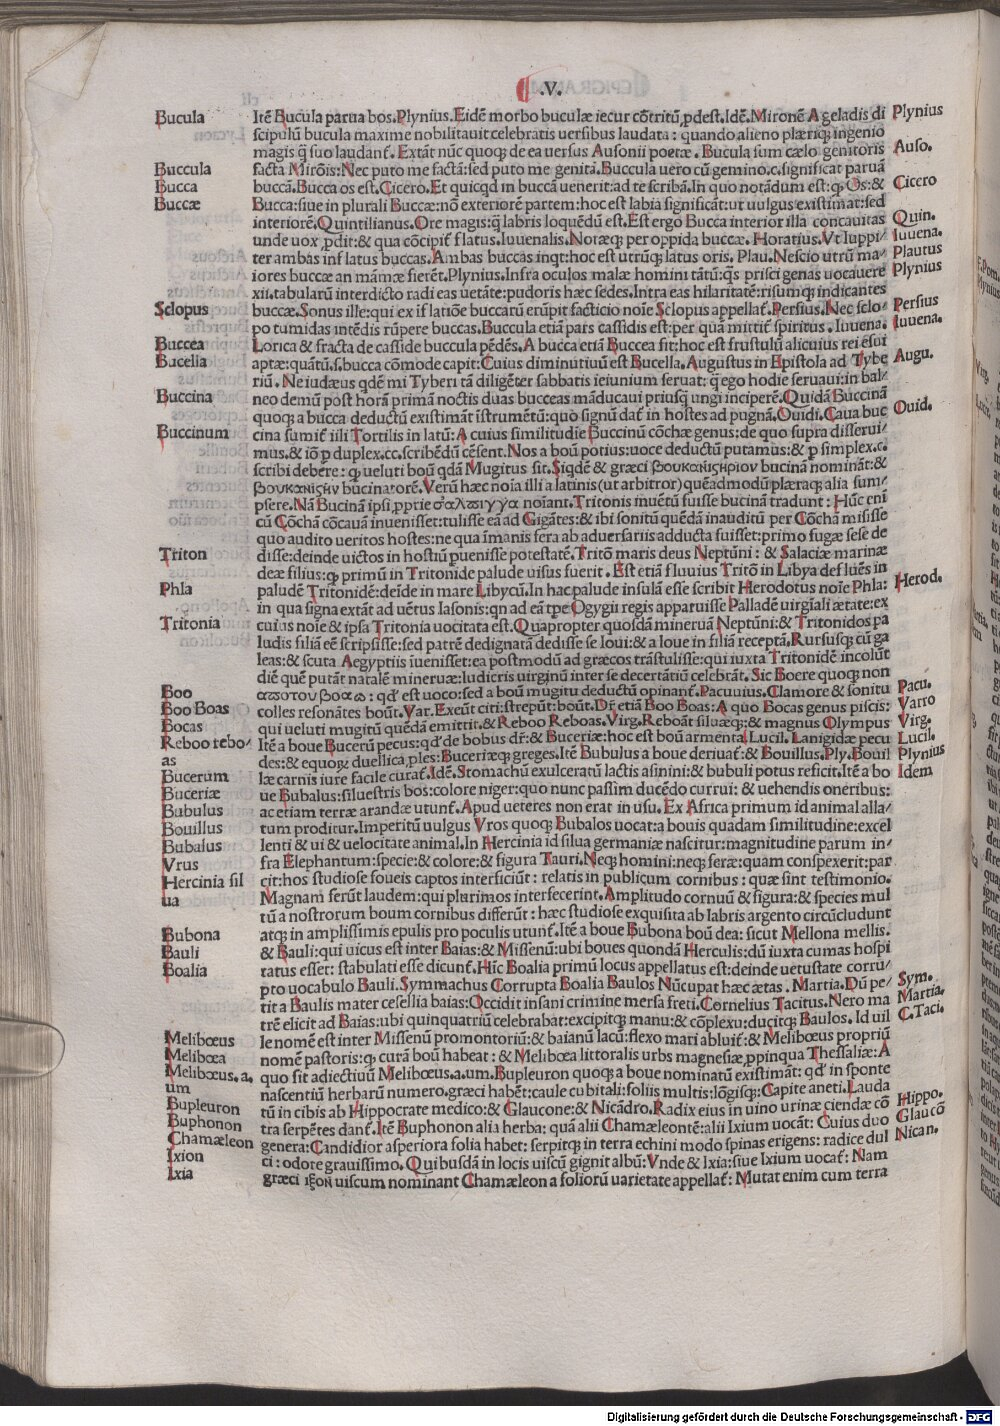 .V.
Bucula Itē Bucula parua bos.Plynius.Eidē morbo buculæ iecur cōtritū ꝓdest.Idē.Mironē Ageladis di Plynius
scipulū bucula maxime nobilitauit celebratis uersibus laudata: quando alieno plæriqꝫ ingenio
magis q̄ suo laudanť. Extāt nūc quoqꝫ de ea uersus Ausonii poetæ. Bucula sum cælo genitoris Auso.
Buccula facta Mirōis:Nec puto me factā:sed puto me genitā.Buccula uero cū gemino.c.significat paruā
Bucca buccā.Bucca os est.Cicero.Et quicqd in buccā uenerit:ad te scribā.In quo notādum est:ꝙ Os:& Cicero
Buccæ Bucca:siue in plurali Buccæ:nō exteriorē partem:hoc est labia significāt:ut uulgus existimat:sed
interiorē.Quintilianus.Ore magis:q̄ labris loquēdū est.Est ergo Bucca interior illa concauitas Quin.
unde uox ꝓdit:& qua cōcipiť flatus.Iuuenalis.Notæqꝫ per oppida buccæ. Horatius.Vt Iuppi/ Iuuena.
ter ambas inflatus buccas.Ambas buccas inqt:hoc est utrūqꝫ latus oris. Plau.Nescio utrū ma/ Plautus
iores buccæ an māmæ fierēt.Plynius.Infra oculos malæ homini tātū:q̄s prisci genas uocauere Plynius
xii.tabularū interdicto radi eas uetāte:pudoris hæc sedes.Intra eas hilaritatē:risumqꝫ indicantes
Sclopus buccæ.Sonus ille:qui ex iflatiōe buccarū erūpit facticio noīe Sclopus appellať.Persius.Nec sclo/ Persius
po tumidas intēdis rūpere buccas.Buccula etiā pars cassidis est:per quā mittiť spiritus.Iuuena. Iuuena.
Buccea Lorica & fracta de casside buccula pēdēs.A bucca etiā Buccea fit:hoc est frustulū alicuius rei esui
Bucelia aptæ:quātū.s.bucca cōmode capit:Cuius diminutiuū est Bucella.Augustus in Epistola ad Tybe Augu.
riū. Ne iudæus qdē mi Tyberi tā diligēter sabbatis ieiunium seruat:q̄ ego hodie seruaui:in bal/
Buccina neo demū post horā primā noctis duas bucceas māducaui priusq̄ ungi inciperē.Quidā Buccinā
quoqꝫ a bucca deductū existimāt īstrumētū:quo signū dať in hostes ad pugnā.Ouidi.Caua buc Ouid.
Buccinum cina sumiť illi Tortilis in latū:A cuius similitudīe Buccinū cōchæ genus:de quo supra disserui/
mus.& iō ꝑ duplex.cc.scribēdū cēsent.Nos a boū potius:uoce deductū putamus:& ꝑ simplex.c.
scribi debere: ꝙ ueluti boū qdā Mugitus sit.Siqdē & græci βουκανιστήριον bucinā nomināt:&
βουκανιστὴν bucinatorē.Verū hæc noīa illi a latinis(ut arbitror)quēadmodū plæraqꝫ alia sum/
psere.Nā Bucinā ipsi ꝓprie σάλπιγγα noīant.Tritonis inuētū fuisse bucinā tradunt: Hūc eni
cū Cōchā cōcauā inuenisset:tulisse eā ad Gigātes:& ibi sonitū quēdā inauditū per Cōchā misisse
quo audito ueritos hostes:ne qua īmanis fera ab aduersariis adducta fuisset:primo fugæ sese de
Triton disse:deinde uictos in hostiū ꝑuenisse potestatē.Tritō maris deus Neptūni: & Salaciæ marinæ
deæ filius:ꝙ primū in Tritonide palude uisus fuerit. Est etiā fluuius Tritō in Libya defluēs in
Phla paludē Tritonidē:deīde in mare Libycū.In hac palude insulā esse scribit Herodotus noīe Phla: Herod.
in qua signa extāt aduētus Iasonis:qn ad eā tꝑe Ogygii regis apparuisse Palladē uirgīali ætate:ex
Tritonia cuius noīe & ipsa Tritonia uocitata est.Quapropter quosdā mineruā Neptūni:& Tritonidos pa
ludis filiā eē scripsisse:sed patrē dedignatā dedisse se Ioui:& a Ioue in filiā receptā.Rursusqꝫ cū ga
leas:& scuta Aegyptiis īuenisset:ea postmodū ad græcos trāstulisse:qui iuxta Tritonidē incolūt
diē quē putāt natalē mineruæ:ludicris uirginū inter se decertātiū celebrāt. Sic Boere quoqꝫ non
Boo απο του βοαω: qď est uoco:sed a boū mugitu deductū opinanť.Pacuuius.Clamore & sonitu Pacu.
Boo Boas colles resonātes boūt.Var.Exeūt citi:strepūt:boūt.Dr̄ etiā Boo Boas:A quo Bocas genus piscis: Varro
Bocas qui ueluti mugitū quēdā emittit.& Reboo Reboas.Virg.Reboāt siluæqꝫ:& magnus Olympus Virg.
Reboo rebo/ Itē a boue Bucerū pecus:qď de bobus dr̄:& Buceriæ:hoc est boū armenta.Lucil.Lanigidæ pecu Lucil.
as des:& equoꝝ duellica ꝓles:Buceriæqꝫ greges.Itē Bubulus a boue deriuať:& Bouillus.Ply.Bouil Plynius
Bucerum læ carnis iure facile curať.Idē.Stomachū exulceratū lactis asinini:& bubuli potus reficit.Itē a bo Idem
Buceriæ ue Bubalus:siluestris bos:colore niger:quo nunc passim ducēdo currui: & uehendis oneribus:
Bubulus ac etiam terræ arandæ utunť.Apud ueteres non erat in usu. Ex Africa primum id animal alla/
Bouillus tum proditur.Imperitū uulgus Vros quoqꝫ Bubalos uocat:a bouis quadam similitudine:excel
Bubalus lenti & ui & uelocitate animal.In Hercinia id silua germaniæ nascitur:magnitudine parum in/
Vrus fra Elephantum:specie:& colore:& figura Tauri.Neqꝫ homini:neqꝫ feræ:quam conspexerit:par
Hercinia sil cit:hos studiose foueis captos interficiūt: relatis in publicum cornibus: quæ sint testimonio.
ua Magnam ferūt laudem:qui plurimos interfecerint.Amplitudo cornuū & figura:& species mul
tū a nostrorum boum cornibus differūt: hæc studiose exquisita ab labris argento circūcludunt
Bubona atqꝫ in amplissimis epulis pro poculis utunť.Itē a boue Bubona boū dea: sicut Mellona mellis.
Bauli & Bauli:qui uicus est inter Baias:& Missenū:ubi boues quondā Herculis:dū iuxta cumas hospi
Boalia tatus esset: stabulati esse dicunť. Hīc Boalia primū locus appellatus est:deinde uetustate corru/
pto uocabulo Bauli.Symmachus Corrupta Boalia Baulos Nūcupat hæc ætas. Martia.Dū pe/ Sym.
tit a Baulis mater cesellia baias:Occidit insani crimine mersa freti.Cornelius Tacitus.Nero ma Martia.
trē elicit ad Baias:ubi quinquatriū celebrabat:excipitqꝫ manu:& cōplexu:ducitqꝫ Baulos.Id uil C.Taci.
Melibœus le nomē est inter Missenū promontoriū:& baianū lacū:flexo mari abluiť:& Melibœus propriū
Melibœa nomē pastoris:ꝙ curā boū habeat: & Melibœa littoralis urbs magnesiæ ꝓpinqua Thessaliæ:A
Melibœus.a. quo sit adiectiuū Melibœus.a.um.Bupleuron quoqꝫ a boue nominatū existimāt: qď in sponte
um nascentiū herbarū numero.græci habēt:caule cubitali:foliis multis:lōgisqꝫ:Capite aneti.Lauda
Bupleuron tū in cibis ab Hippocrate medico:& Glaucone:& Nicādro.Radix eius in uino urinæ ciendæ cō Hippo.
Buphonon tra serpētes danť.Itē Buphonon alia herba: quā alii Chamæleontē:alii Ixium uocāt: Cuius duo Glaucō
Chamæleon genera:Candidior asperiora folia habet: serpitqꝫ in terra echini modo spinas erigens: radice dul Nican.
Ixion ci: odore grauissimo.Quibusdā in locis uiscū gignit albū:Vnde & Ixia:siue Ixium uocať: Nam
Ixia græci ιξον uiscum nominant Chamæleon a foliorū uarietate appellať: Mutat enim cum terra
Digitalisierung gefördert durch die Deutsche Forschungsgemeinschaft - DFG